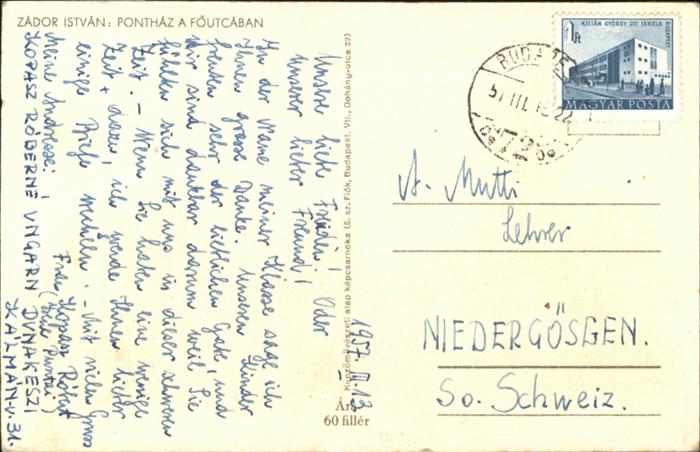 ZÁDOR ISTVÁN: PONTHÁZ A FŐUTCÁBAN
Unsere liebe Freundin! Oder
unserer lieber Freund!
In der Name meiner Klasse sage ich
Ihnen grosse Danke. Unseren Kinder
freuten sehr der lieblichen Gabe, und
wir sind dankbar darum weil Sie
fühlen sich mit uns in dieser schweren
Zeit. – Wenn Sie haben eine wenige
Zeit + dazu, ich werde Ihnen lieber
einige Briefe
Meine Andresse: Frau Kopasz Róbert
KOPASZ RÓBERNÉ UNGARN DUNAKESZI
KÁLMÁN-u 31.
1957. III. 13
Képzőművészeti alap képcsarnoka (5. sz. Fiók, Budapest, VII., Dohány-utca 22)
Ára
60 fillér
1 Ft
KILIÁN GYÖRGY ÚTI ISKOLA
BUDAPEST
MAGYAR POSTA
BUDAPEST
57 III. 22
A. Mutti
Lehrer
NIEDERGÖSGEN.
So. Schweiz.